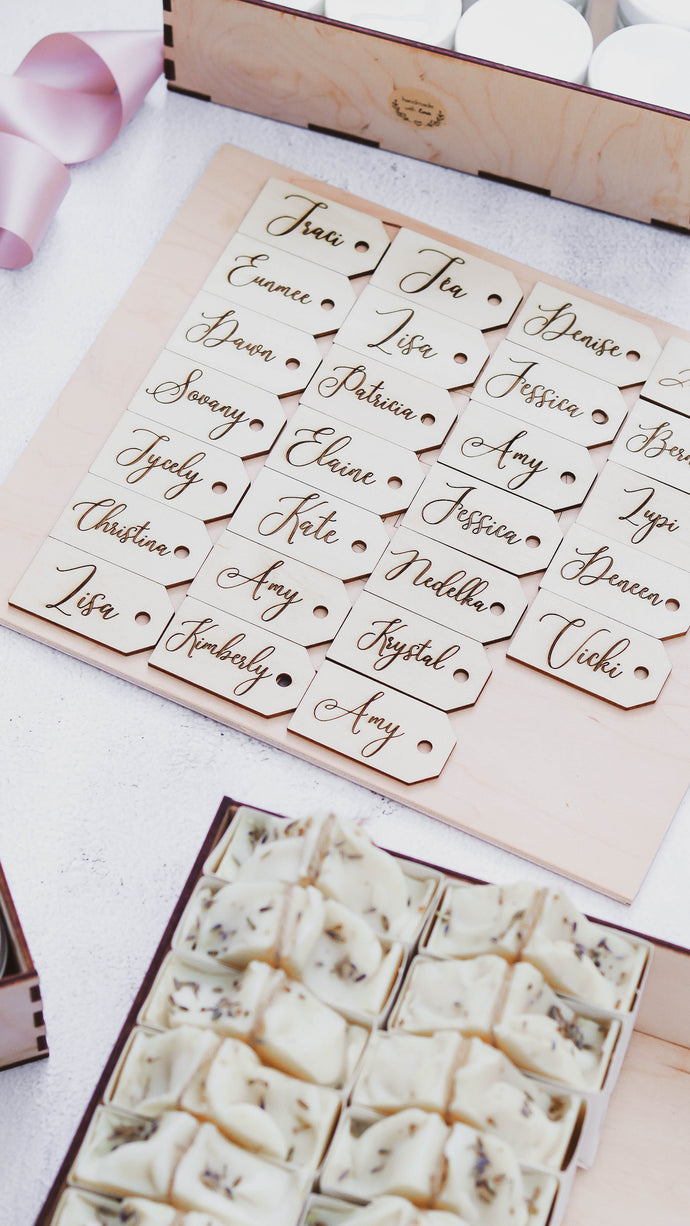 handmade
with Love
Traci
Eunmee
Dawn
Sovany
Jycely
Christina
Lisa
Tea
Lisa
Patricia
Elaine
Kate
Amy
Kimberly
Denise
Jessica
Amy
Jessica
Nedelka
Krystal
Amy
Lupi
Deneen
Vicki